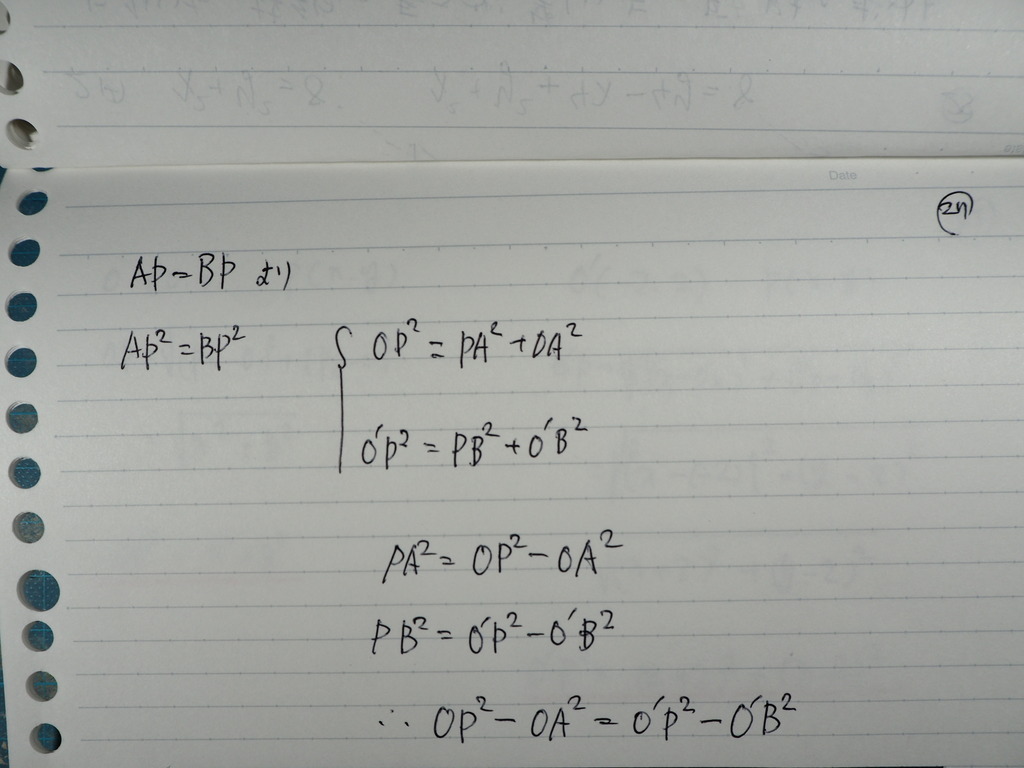 Date
AP=BP より
AP²=BP²
OP² = PA² + OA²
O'P² = PB² + O'B²
PA² = OP² - OA²
PB² = O'P² - O'B²
∴ OP² - OA² = O'P² - O'B²